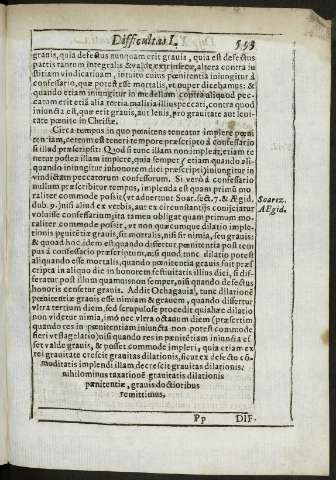 Difficultas I. 593
gravis, quia defectus nunquam erit gravis, quia est defectus
partis tantum integralis & valde extrinsecæ, altera contra iu
stitiam vindicativam, intuitu cuius pœnitentia iniungitur á
confessario, que potest esse mortalis, ut nuper dicebamus: &
quando etiam iniungitur in medellam contra aliquod pec-
catum erit etiá alia tertia malitia illius peccati, contra quod
iniuncta est, que erit gravis, aut levis, pro gravitate aut levi-
tate pœnitentiæ
Circa tempus in quo pœnitens teneatur implere pœni
tentiam, certum est teneri tempore præscripto á confessario
si illud præscripsit: Quod si tunc illam non impleat; etiam te
netur postea illam implere, quia semper & etiam quando ali-
quando iniungitur in honorem diei præscripti iniungitur in
vindictam peccatorum confessorum. Si veró á confessario
nullum præscribitur tempus, implenda est quam primú mo
raliter commode posit (ut advertunt Soar. sect. 7. & Ægid.
dub. 9.) nisi aliud ex verbis, aut ex circunstantijs coniiciatur
Soarez.
AEgid.
voluisse confessarium, ita tamen obligat quam primum mo-
raliter commode posit, ut non quæcumque dilatio imple-
tionis pœnitentiæ gravis, sit mortalis, nisi sit nimia, seu gravis:
& quoad hoc idem est quando differtur pœnitentia post tem
pus á confessario præscriptum, nisi quod tunc dilatio potest
aliquando esse mortalis, quando pœnitentia gravis fuit præs
cripta in aliquo die in honorem festivitatis illius diei, si dif-
feratur post illum quamvis non semper, nisi quando defectus
honoris censetur gravis. Addit Dehagavia, tunc dilationé
pœnitentiæ gravis esse nimiam & gravem, quando differtur
vltra tertium diem, sed scrupulose procedit quia hæc dilatio
non videtur nimia, imò nec vltra octavum diem (præsertim
quando res in pœnitentiam iniuncta non potest commode
fieri vsflagelatio) nisi quando res in pœnitétiam iniuncta es
set valde gravis, & posset commode impleri, quia etiam ex
rei gravitate crescit gravitas dilationis, sicut ex defectu có
moditatis implendi illam, decrescit gravitas dilationis,
nihilominus taxationé gravitatis dilationis
pœnitentiæ, gravis doctioribus
remittimus.
Pp DIF-